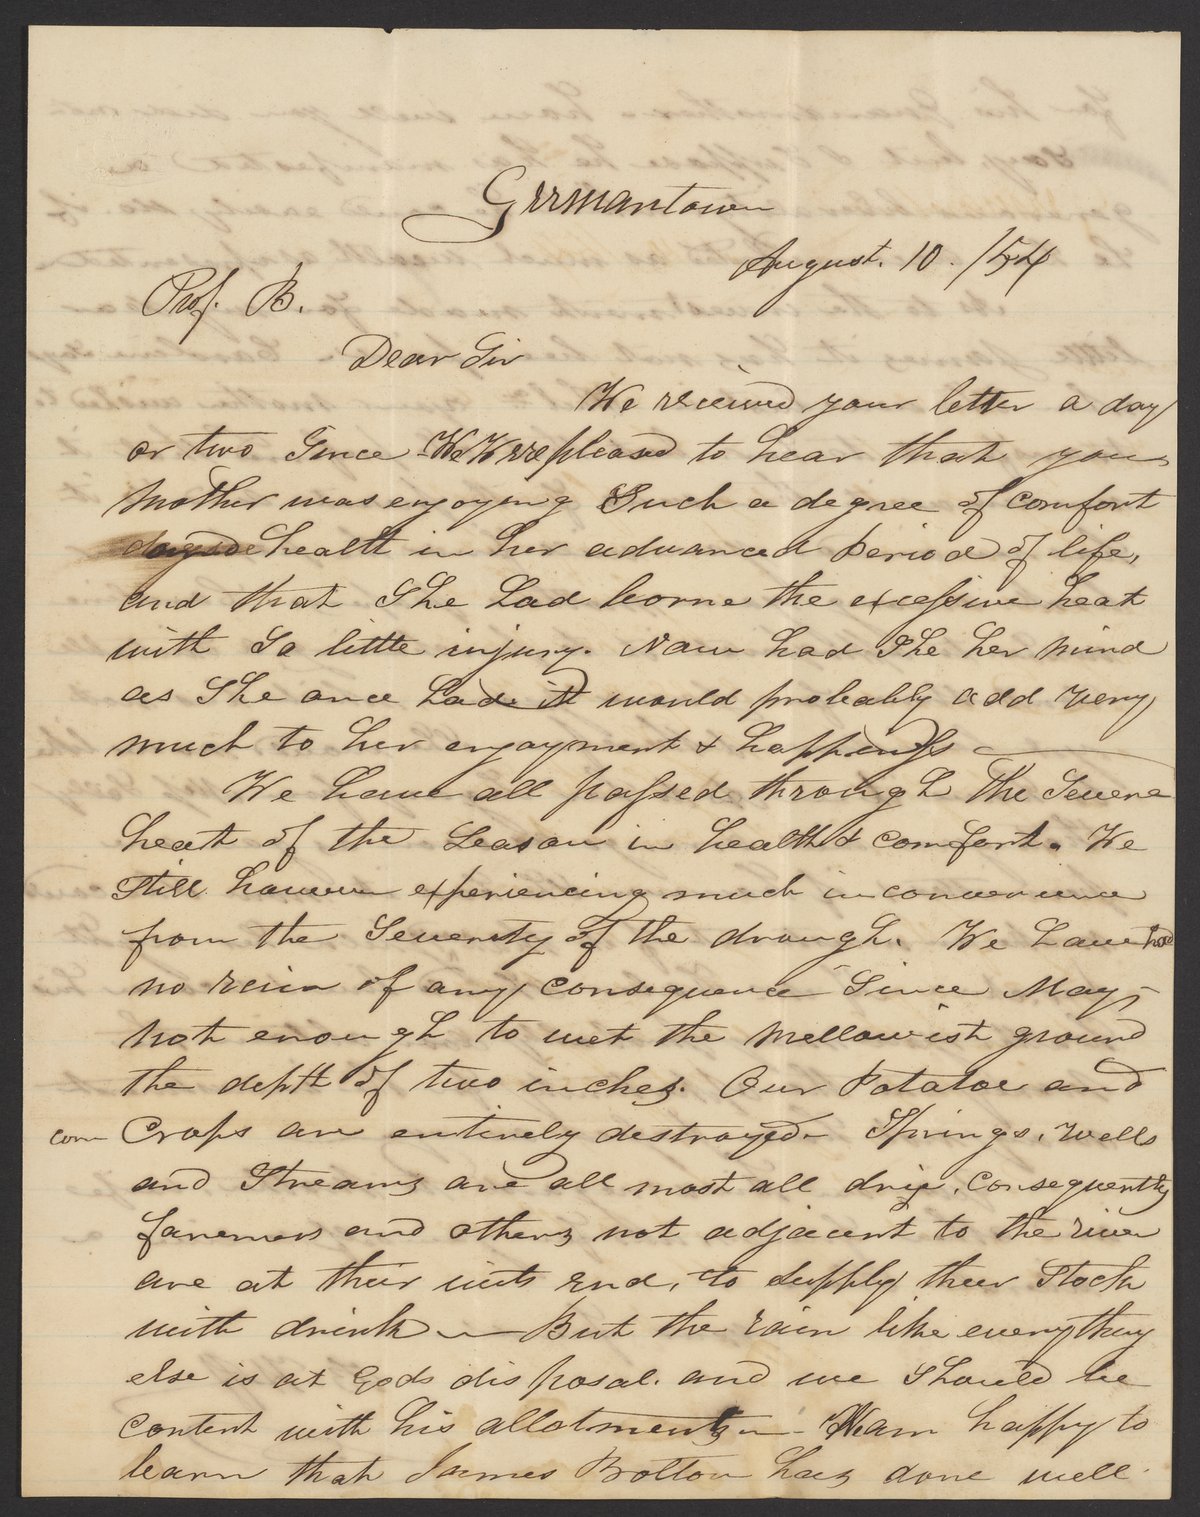 Germantown
August. 10. /54
Prof. B.
Dear Sir
We recieved your letter a day
or two Since We Were pleased to hear that your
Mother was enjoying Such a degree of comfort
health in her advanced Period of life,
and that She had borne the excessive heat
with So little injury. Now had She her mind
as She once had it would probably add very
much to her enjoyment & happiness
We have all passed through The Severe
heat of the Season in health & comfort. We
Still however experiencing much inconvenience
from the Severity of the drough. We have had
no rain of any consequence Since May,
not enough to wet the Mellowist ground
the depth of two inches. Our Potatoe and
corn Crops are entirely destroyed Springs, Wells
and Streams are all most all drie, consequently
faremers and others not adjacent to the river
are at their wits end, to Supply their Stock
with drink — But the rain like everything
else is at Gods disposal. and we Should be
content with his allotments — I am happy to
learn that James Bolton has done well